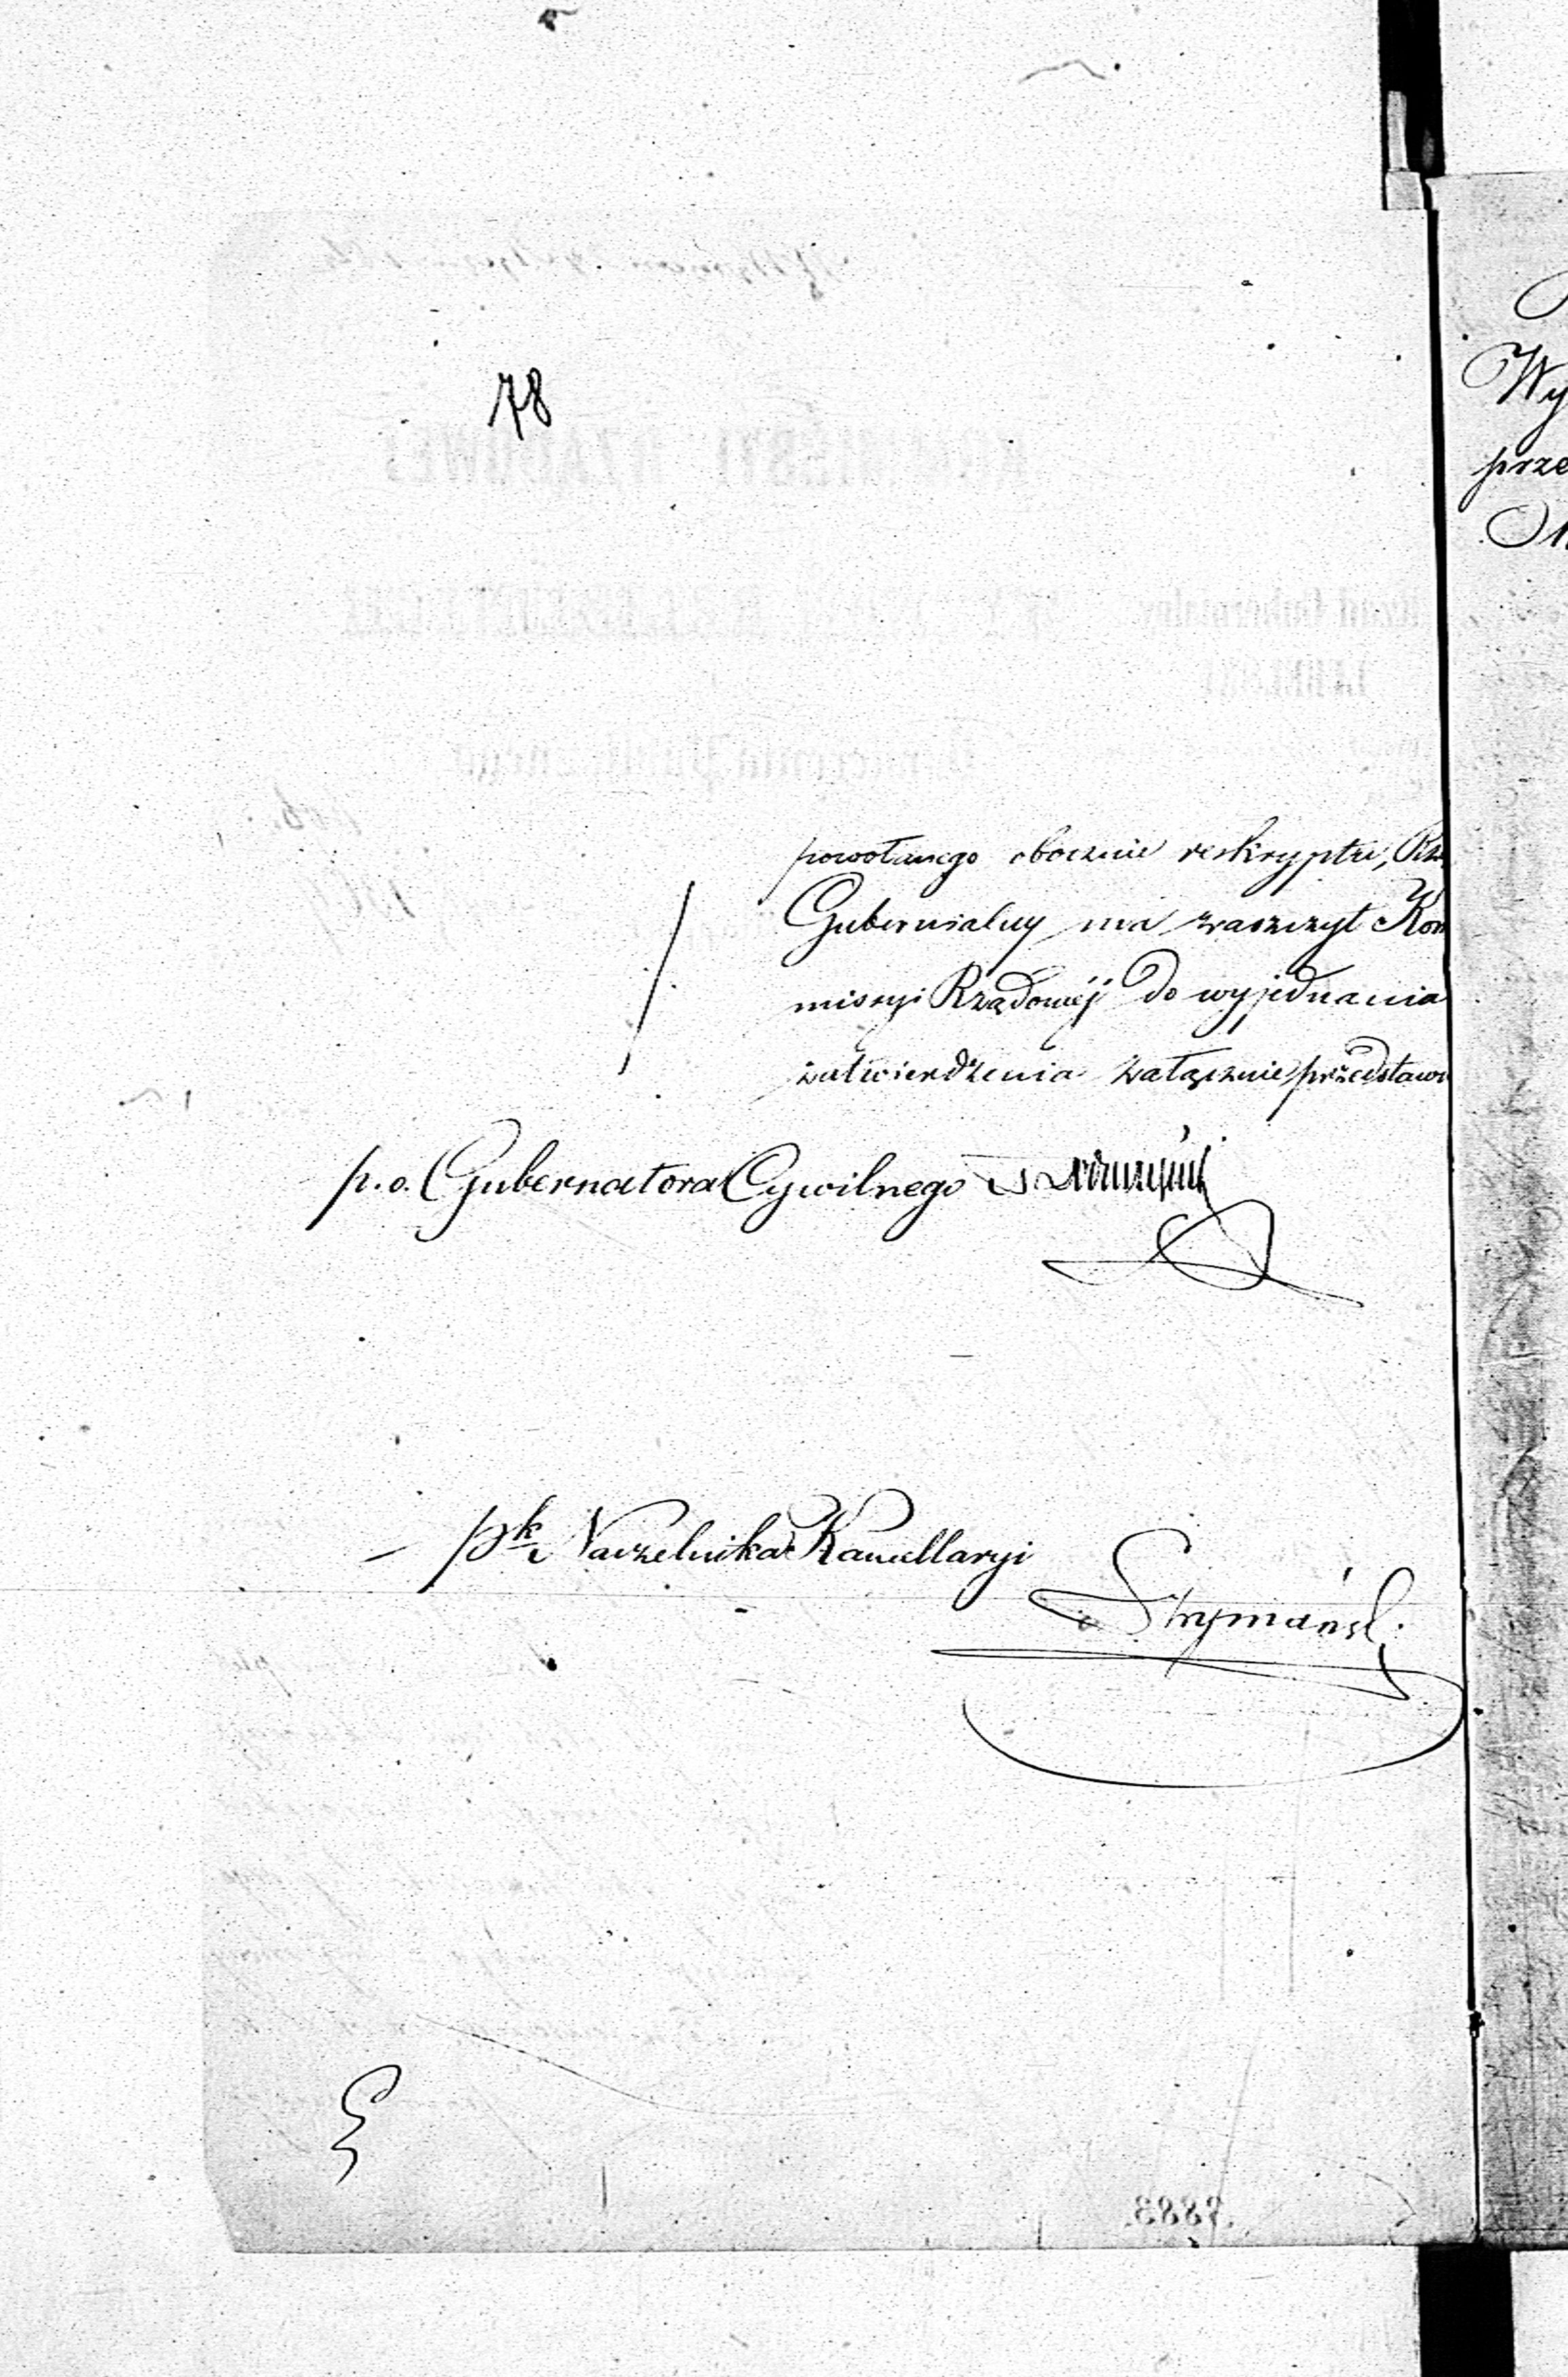 78
powołanego obocznie reskryptu, Rz
Gubernialny ma zaszczyt Kom
missyi Rządowéj do wyjednania
zatwierdzenia załącznie przedstawi
p.o. Gubernatora Cywilnego
pk Naczelnika Kancellaryi
Szymański
Wy
prze